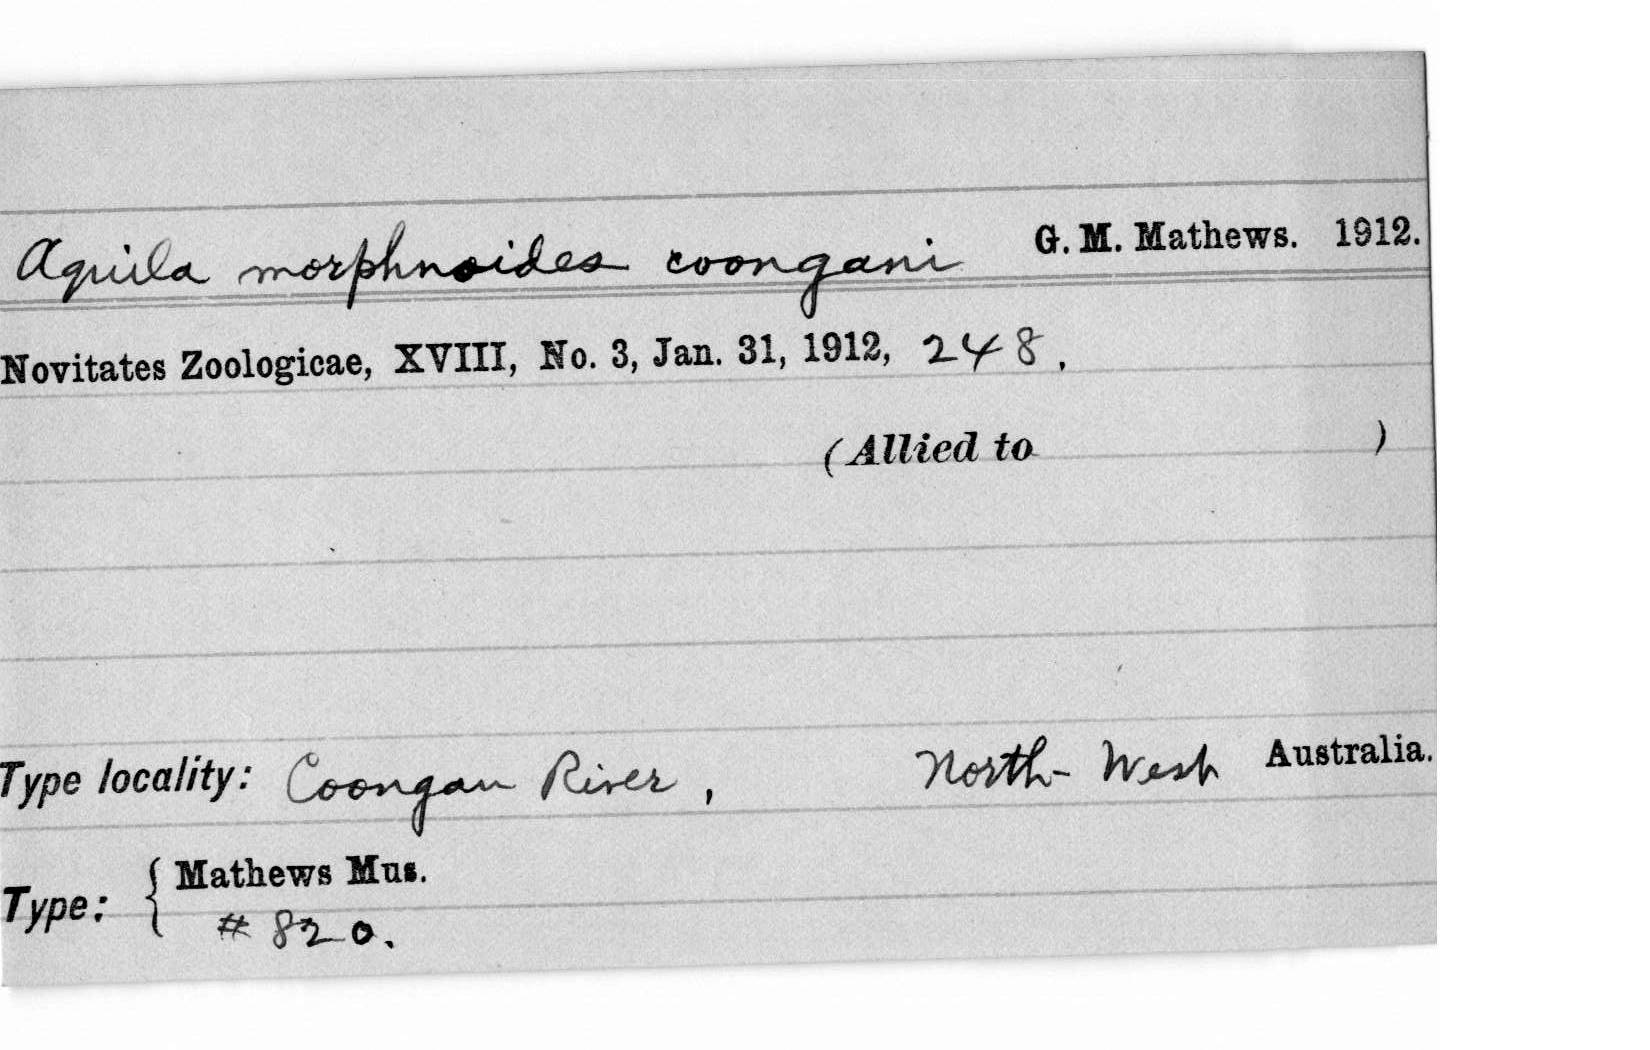 Aquila morphnoides coongani G. M. Mathews. 1912.
Novitates Zoologicae, XVIII, No. 3, Jan. 31, 1912, 248.
(Allied to )
Type locality: Coongan River, North-West Australia.
Type: { Mathews Mus.
# 820.